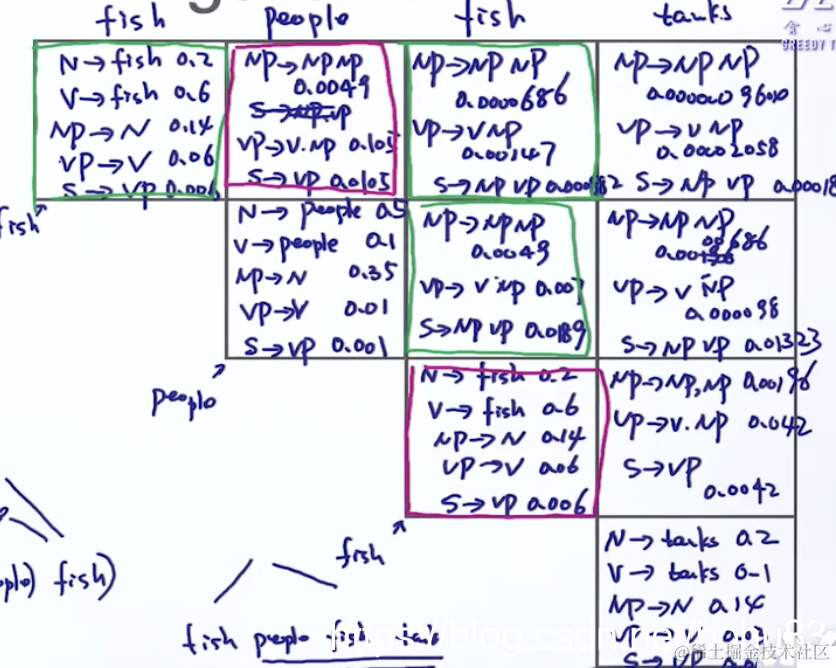 fish people fish tanks
GREEDY T
N→fish 0.2
V→fish 0.6
NP→N 0.14
VP→V 0.06
S→VP 0.006
NP→NP NP
0.0049
S→NP VP
VP→V.NP 0.105
S→VP 0.0105
NP→NP NP
0.0000686
VP→V NP
0.00147
S→NP VP
NP→NP NP
VP→V NP
0.00002058
S→NP VP 0.00018
fish
N→people 0.5
V→people 0.1
NP→N 0.35
VP→V 0.01
S→VP 0.001
NP→NP NP
0.0049
VP→V NP 0.007
S→NP VP 0.0189
NP→NP NP
VP→V NP
0.000098
S→NP VP 0.01323
people
N→fish 0.2
V→fish 0.6
NP→N 0.14
VP→V 0.06
S→VP 0.006
NP→NP,NP 0.00196
VP→V.NP 0.042
S→VP
0.0042
fish
N→tanks 0.2
V→tanks 0.1
NP→N 0.14
VP→V
S→VP
ple) fish)
fish people fish
https://blog.csdn.net/
@稀土掘金技术社区